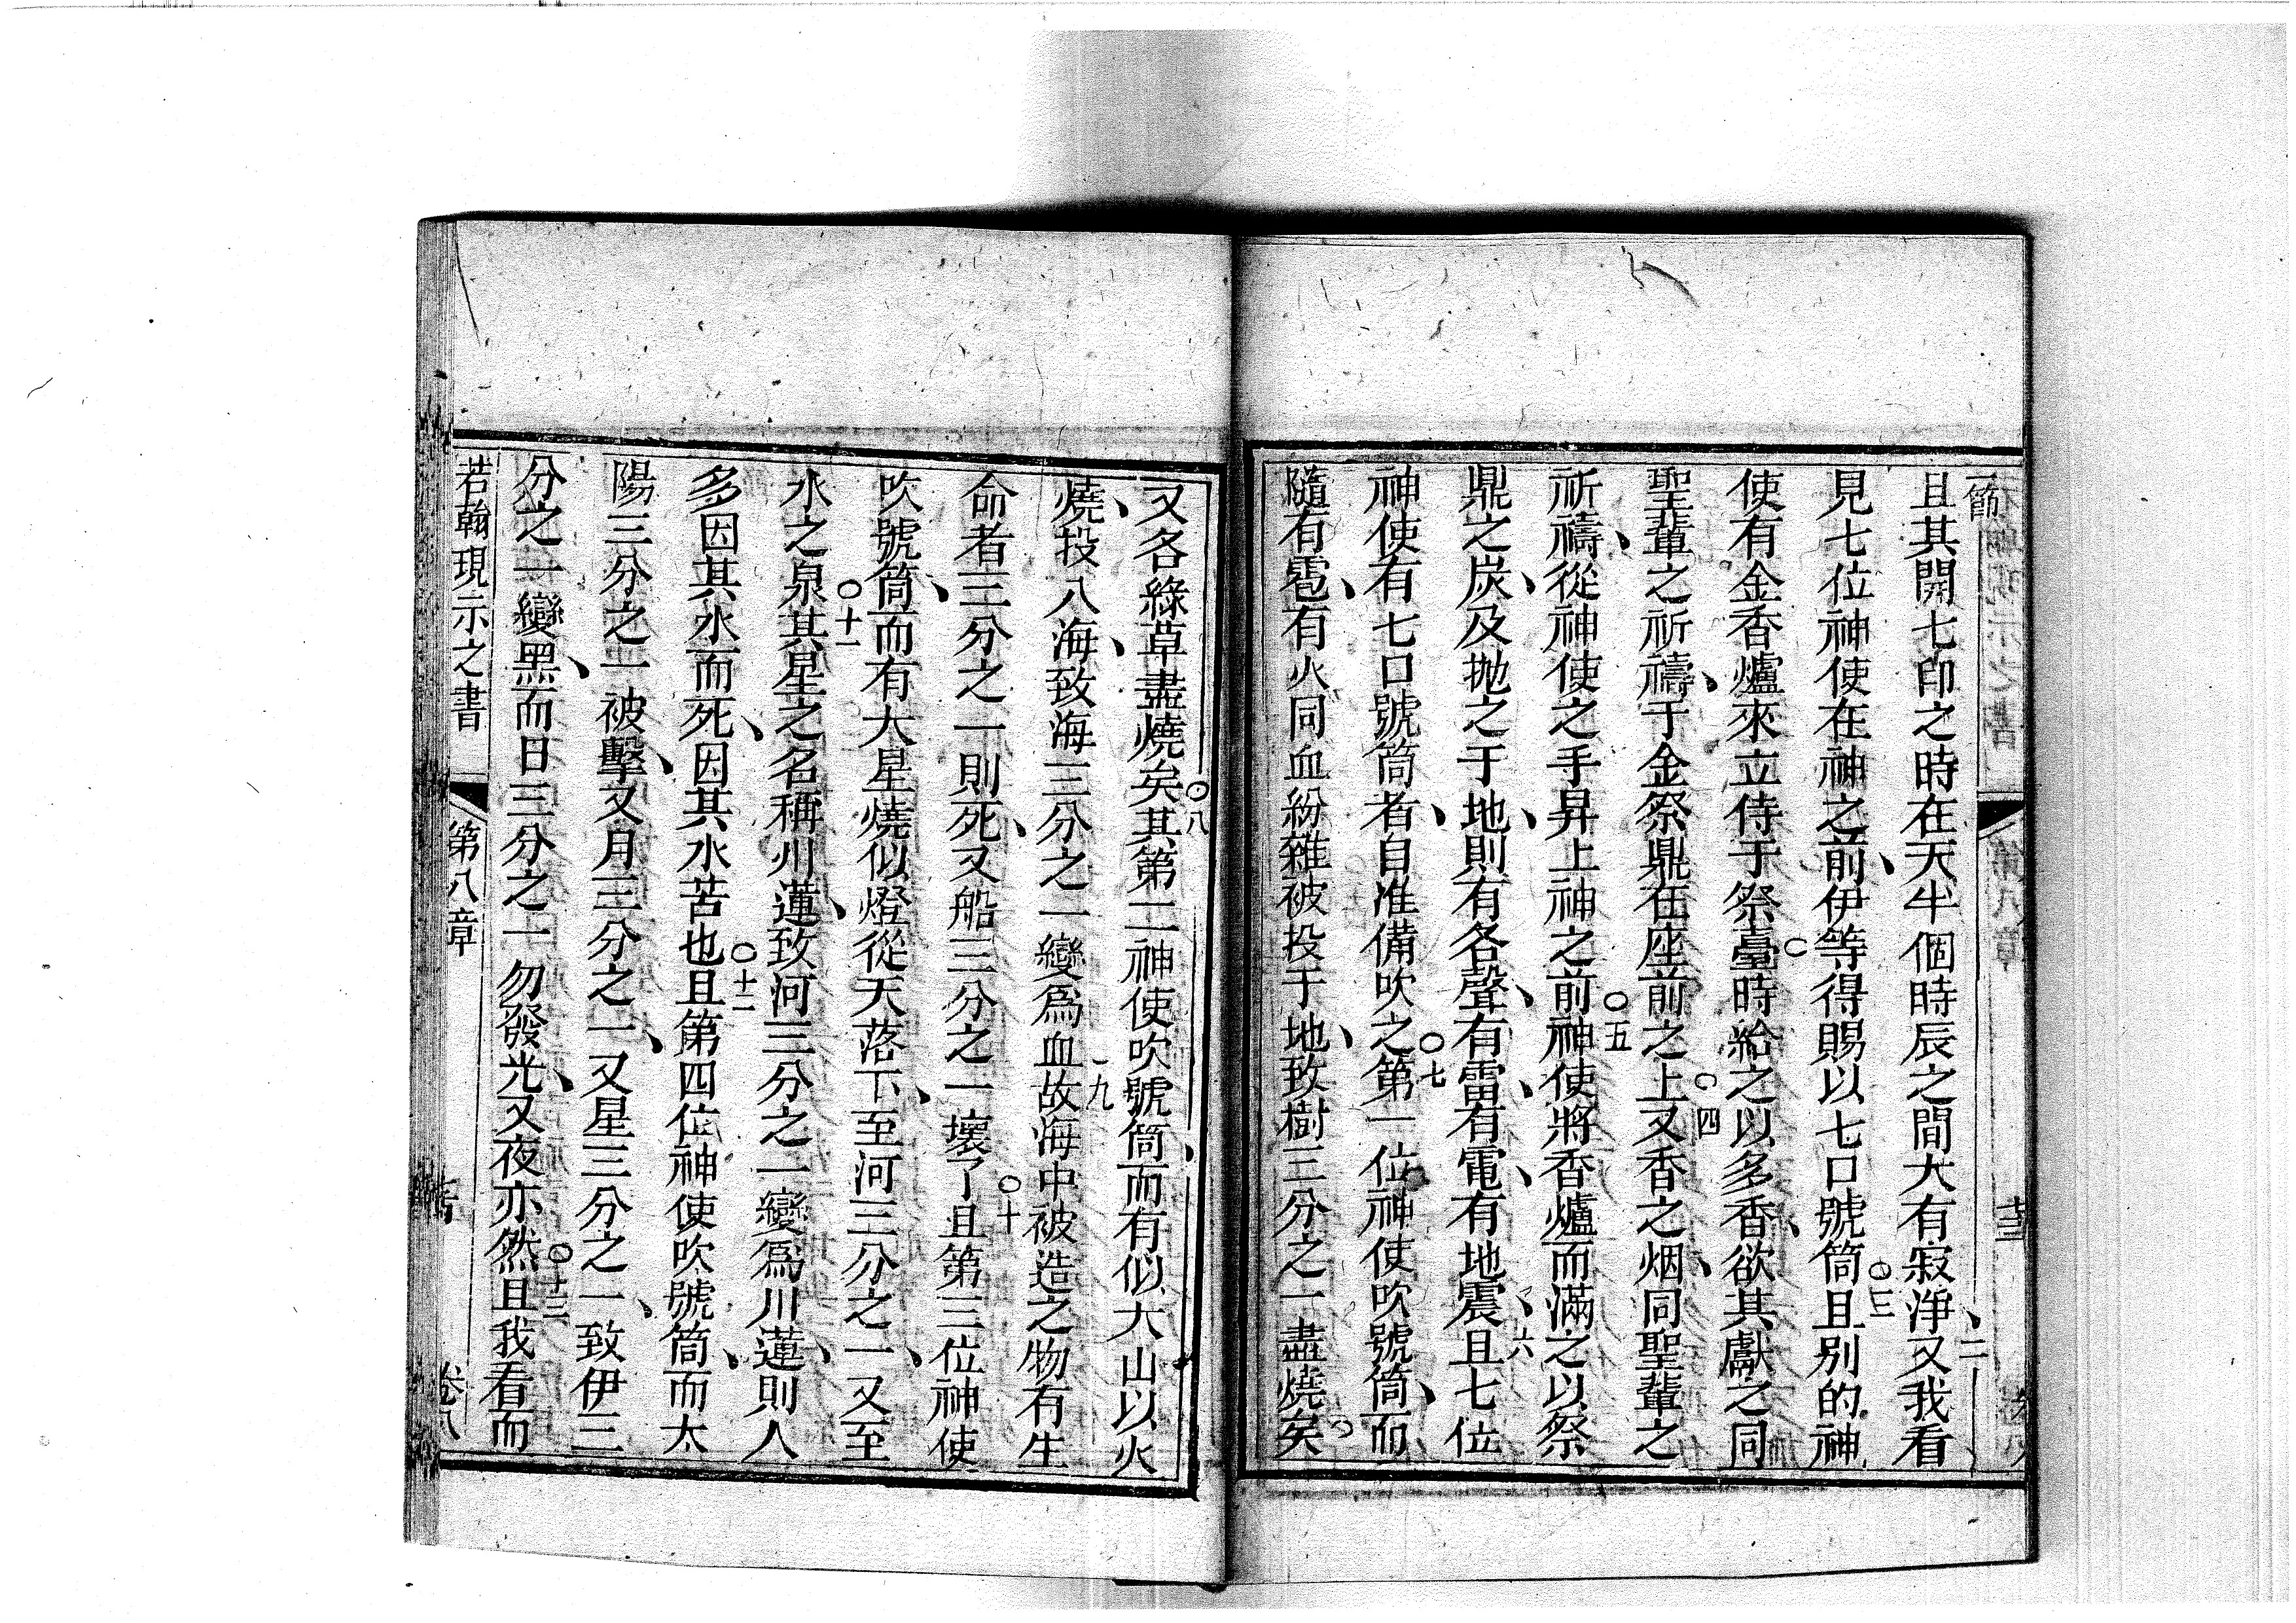 一節
且其開七印之時在天半個時辰之間大有寂淨、又我看
二
見七位神使在神之前、伊等得賜以七口號筒且别的神
○三
使有金香爐來立侍于祭臺時給之以多香、欲其獻之同
聖輩之祈禱、于金祭鼎在座前之上又香之烟、同聖輩之
○四
祈禱、從神使之手昇上神之前神使將香爐而滿之以祭
○五
鼎之炭、及抛之于地、則有各聲、有雷、有電、有地震、且七位
六
神使有七口號筒者、自准備吹之第一位神使吹號筒、而
○七
隨有雹、有火同血紛雜被投于地、致樹三分之一盡燒矣
又各綠草盡燒矣其第二神使吹號筒、而有似大山以火
○八
燒、投入海、致海三分之一變爲血故海中被造之物有生
九
命者三分之一則死、又船三分之一壞了且第三位神使
○十
吹號筒、而有大星燒似燈從天落下、至河三分之一、又至
水之泉其星之名稱川蓮、致河三分之一變爲川蓮、則人
○十一
多因其水而死、因其水苦也且第四位神使吹號筒、而太
○十二
陽三分之一被擊、又月三分之一、又星三分之一、致伊三
分之一變黑、而日三分之一勿發光、又夜亦然且我看而
○十三
若翰現示之書
第八章
卷八